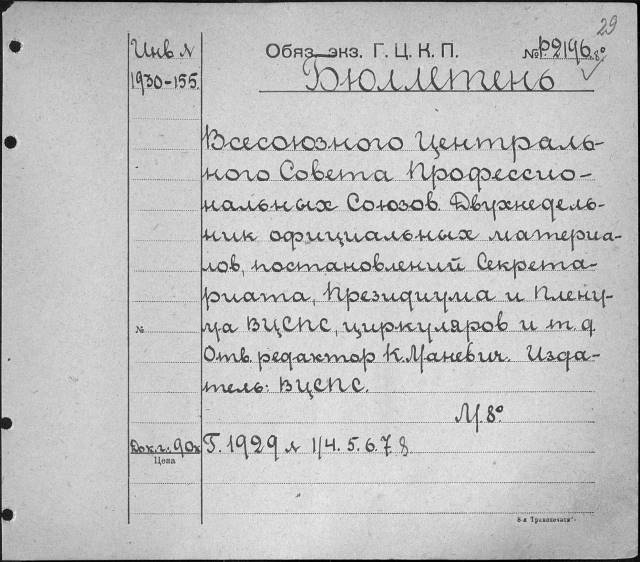 29
Инв. N
1930-155.
Обяз. экз. Г. Ц. К. П.
№ Р2196. 8°
Бюллетень
Всесоюзного Централь-
ного Совета Профессио-
нальных Союзов. Двухнедель-
ник официальных материа-
лов, постановлений Секрета-
риата, Президиума и Плену-
ма ВЦСПС, циркуляров и т. д.
№
Отв. редактор К. Маневич. Изда-
тель: ВЦСПС.
М. 8°
90к
Цена
Г. 1929 N 1/4. 5. 6. 7. 8